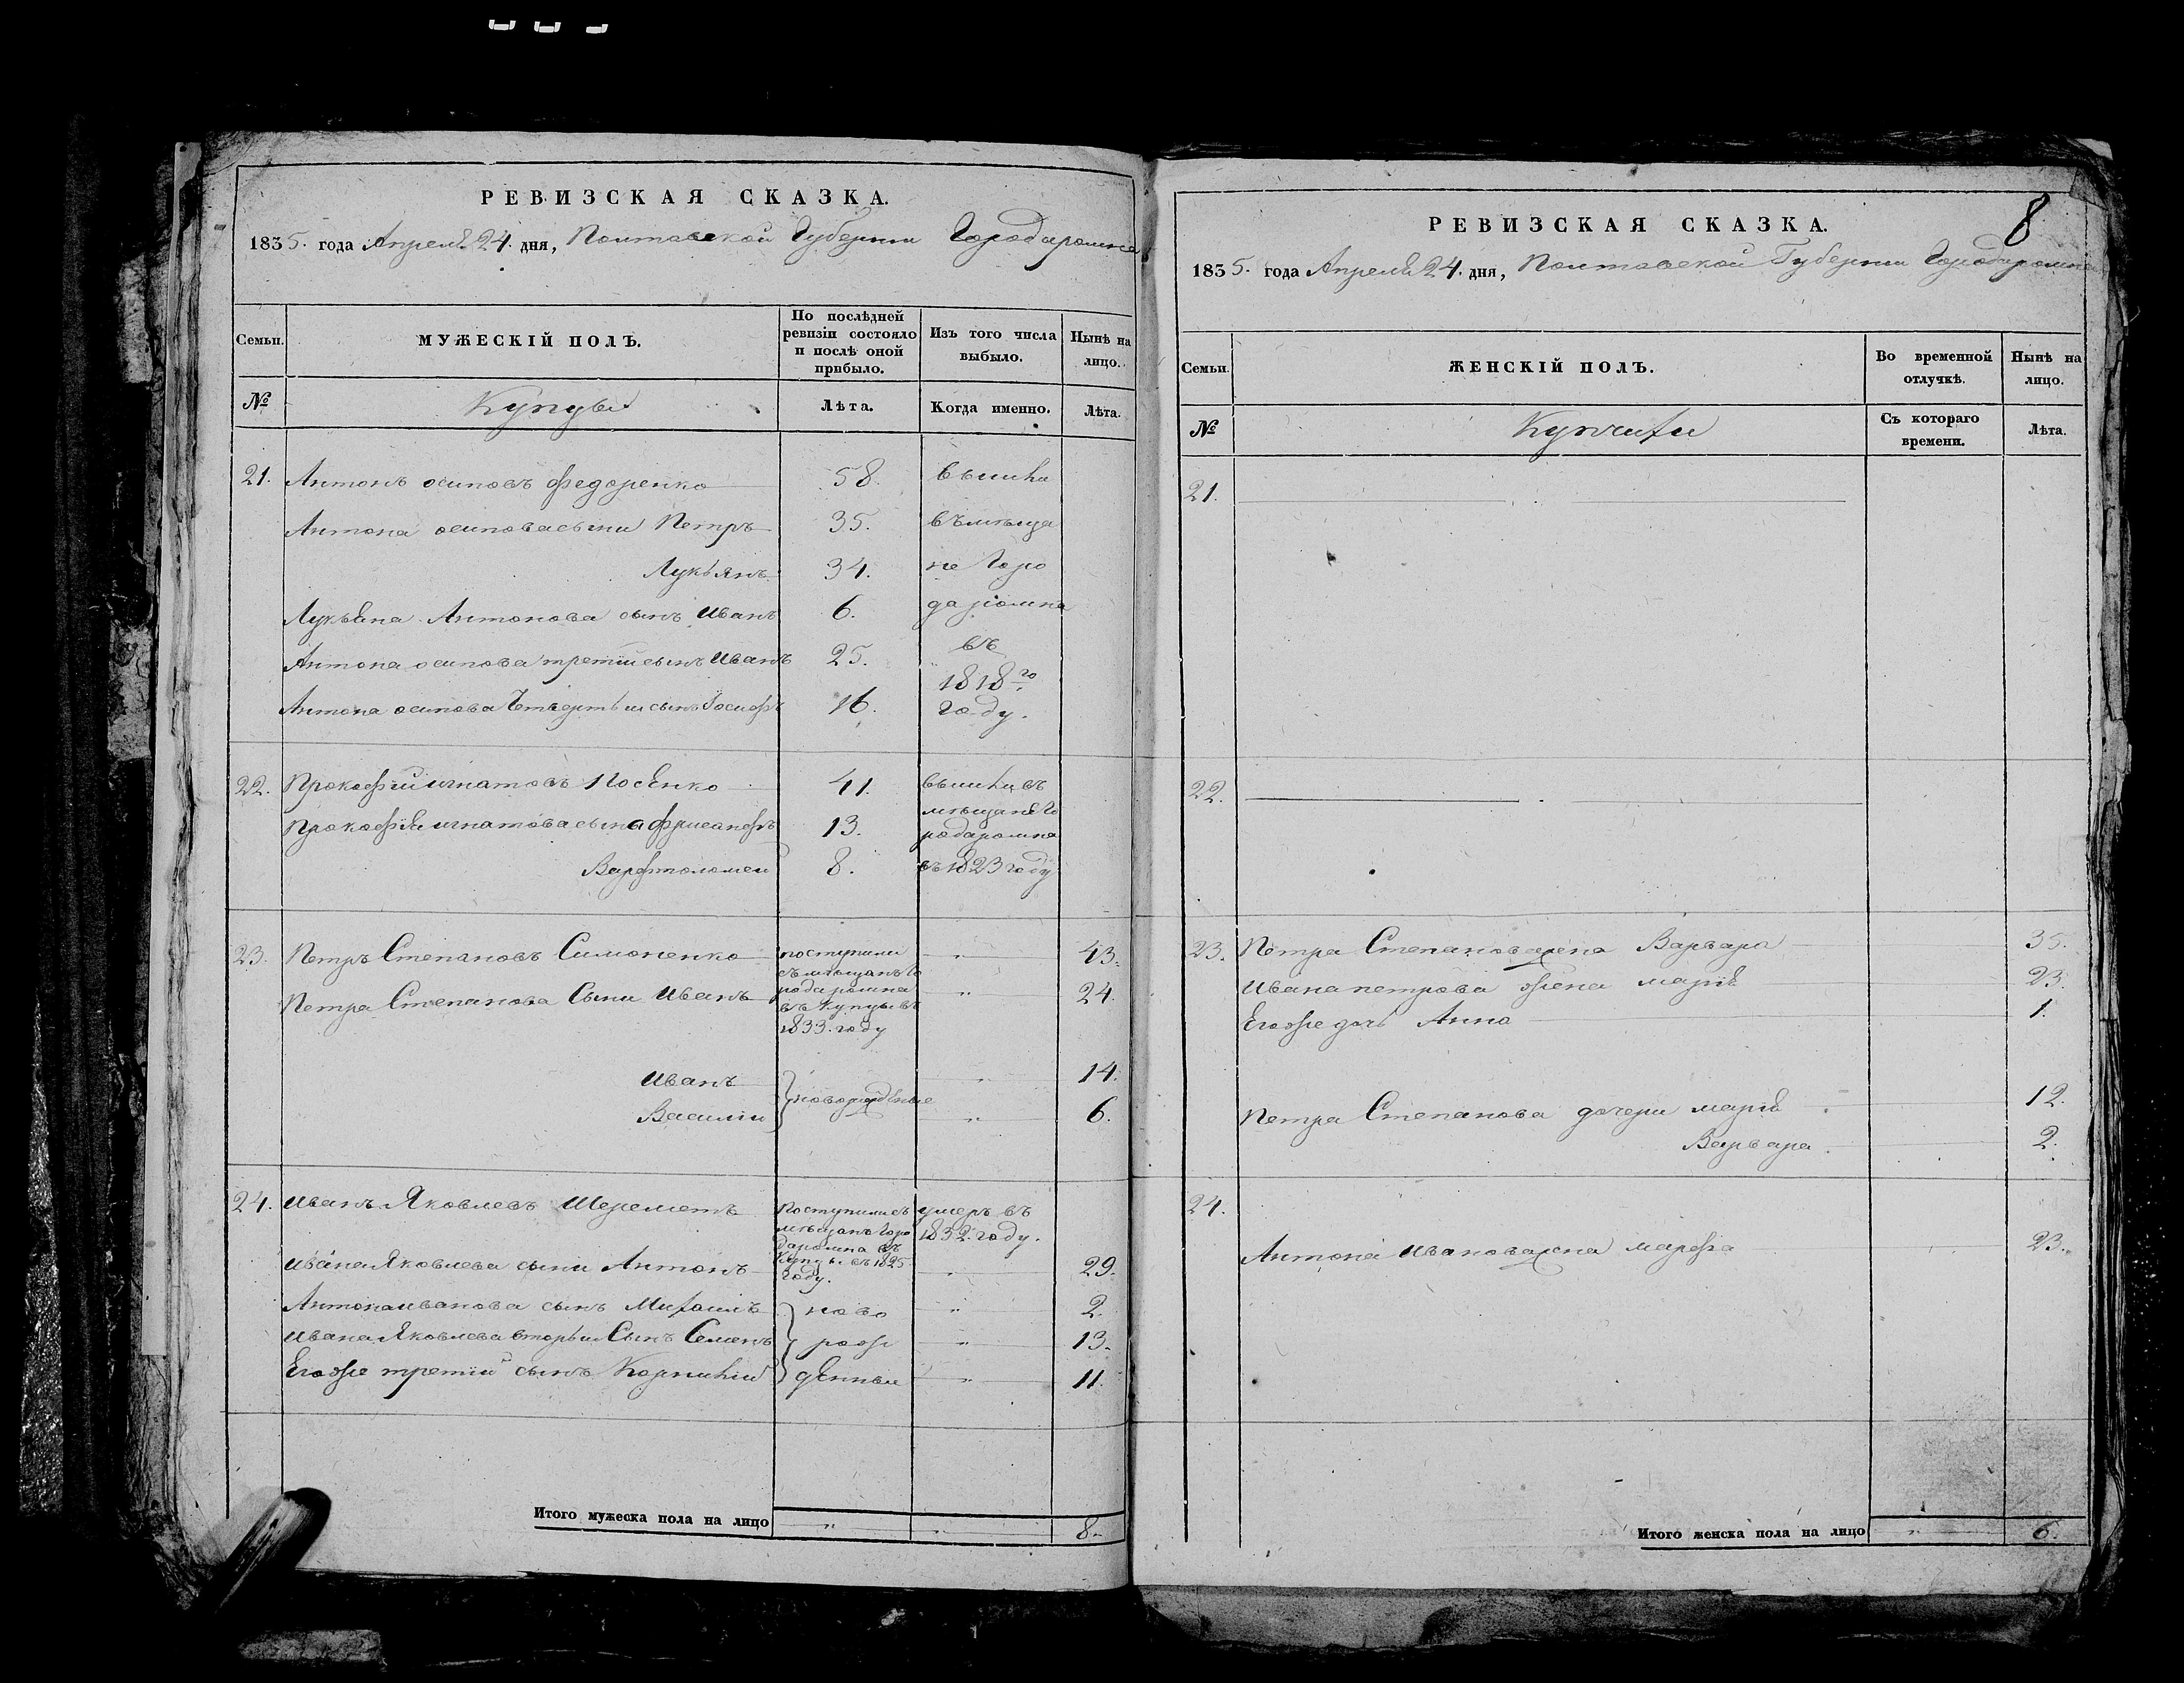 РЕВИЗСКАЯ СКАЗКА.
1835. года Апреля 24. дня, Полтавской Губернии Города ромна
Семьи.
МУЖЕСКІЙ ПОЛЪ.
По послѣдней ревизіи состояло и послѣ оной прибыло.
Изъ того числа выбыло.
Нынѣ на лицо.
№
Купцы
Лѣта.
Когда именно.
Лѣта.
21. Антонъ осиповъ федоренко 58. вышли
Антона осипова сыни Петръ 35. въмѣща
Лукьянъ 34. не Горо
Лукьяна Антонова сынъ Иванъ 6. да ромна
Антона осипова третій сынъ Иванъ 25. въ
1818го
Антона осипова Четвертый сынъ Іосифъ 16. году.
22. Прокофій игнатовъ Носенко 41. вышли въ
мѣщане Го
Прокофія игнатова сына 13. рода ромна
Варфтоломеи 8. въ 1823 году
23. Петръ Степановъ Симоненко поступили „ 43.
съ мѣщанъ Го
рода ромна
Петра Степанова Сыни Иванъ въ Купцы въ „ 24.
1833. году
Иванъ новорожденые „ 14.
Василіи „ 6.
24. Иванъ Яковлевъ Шереметъ Поступили съ умеръ въ
мѣщанъ Горо 1832. году.
да ромна въ
Ивана Яковлева сыни Антонъ Купцы въ 1825 „ 29.
году.
Антона иванова сынъ Михаилъ ново „ 2.
Ивана Яковлева вторый Сынъ Семенъ рож „ 13.
Егоже третій сынъ Корнилій денные „ 11.
Итого мужеска пола на лицо „ „ 8.
8
РЕВИЗСКАЯ СКАЗКА.
1835. года Апреля 24. дня, Полтавской Губернии Города ромна
Семьи.
ЖЕНСКІЙ ПОЛЪ.
Во временной отлучкѣ.
Нынѣ на лицо.
№
Купчихи
Съ котораго времени.
Лѣта.
21.
22.
23. Петра Степанова жена Варвара 35.
Ивана петрова жена марія 23.
Егоже дочь Анна 1.
Петра Степанова дочери марія 12.
Варвара 2.
24.
Антона Иванова жена марфа 23.
Итого женска пола на лицо „ 6.